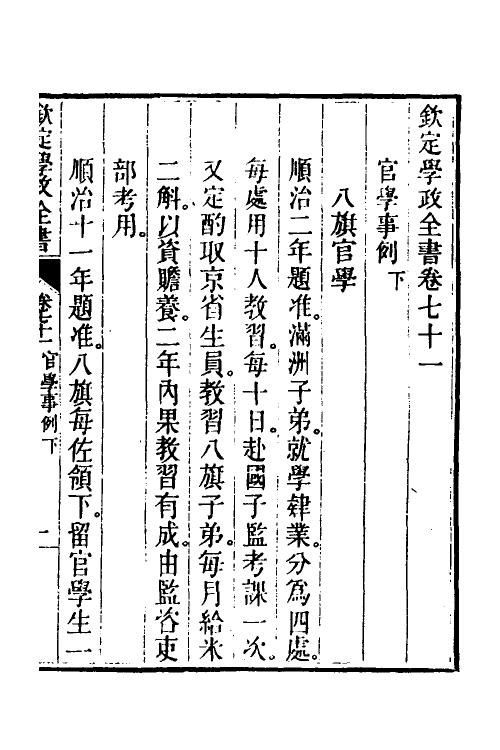 欽定學政全書卷七十一
官學事例下
八旗官學
順治二年題准。滿洲子弟。就學肄業。分爲四處。
每處用十人教習。每十日。赴國子監考課一次。
又定酌取京省生員。教習八旗子弟。每月給米
二斛。以資贍養。二年內果教習有成。由監咨吏
部考用。
順治十一年題准。八旗每佐領下。留官學生一
欽定學政全書 卷七十一 官學事例下 一